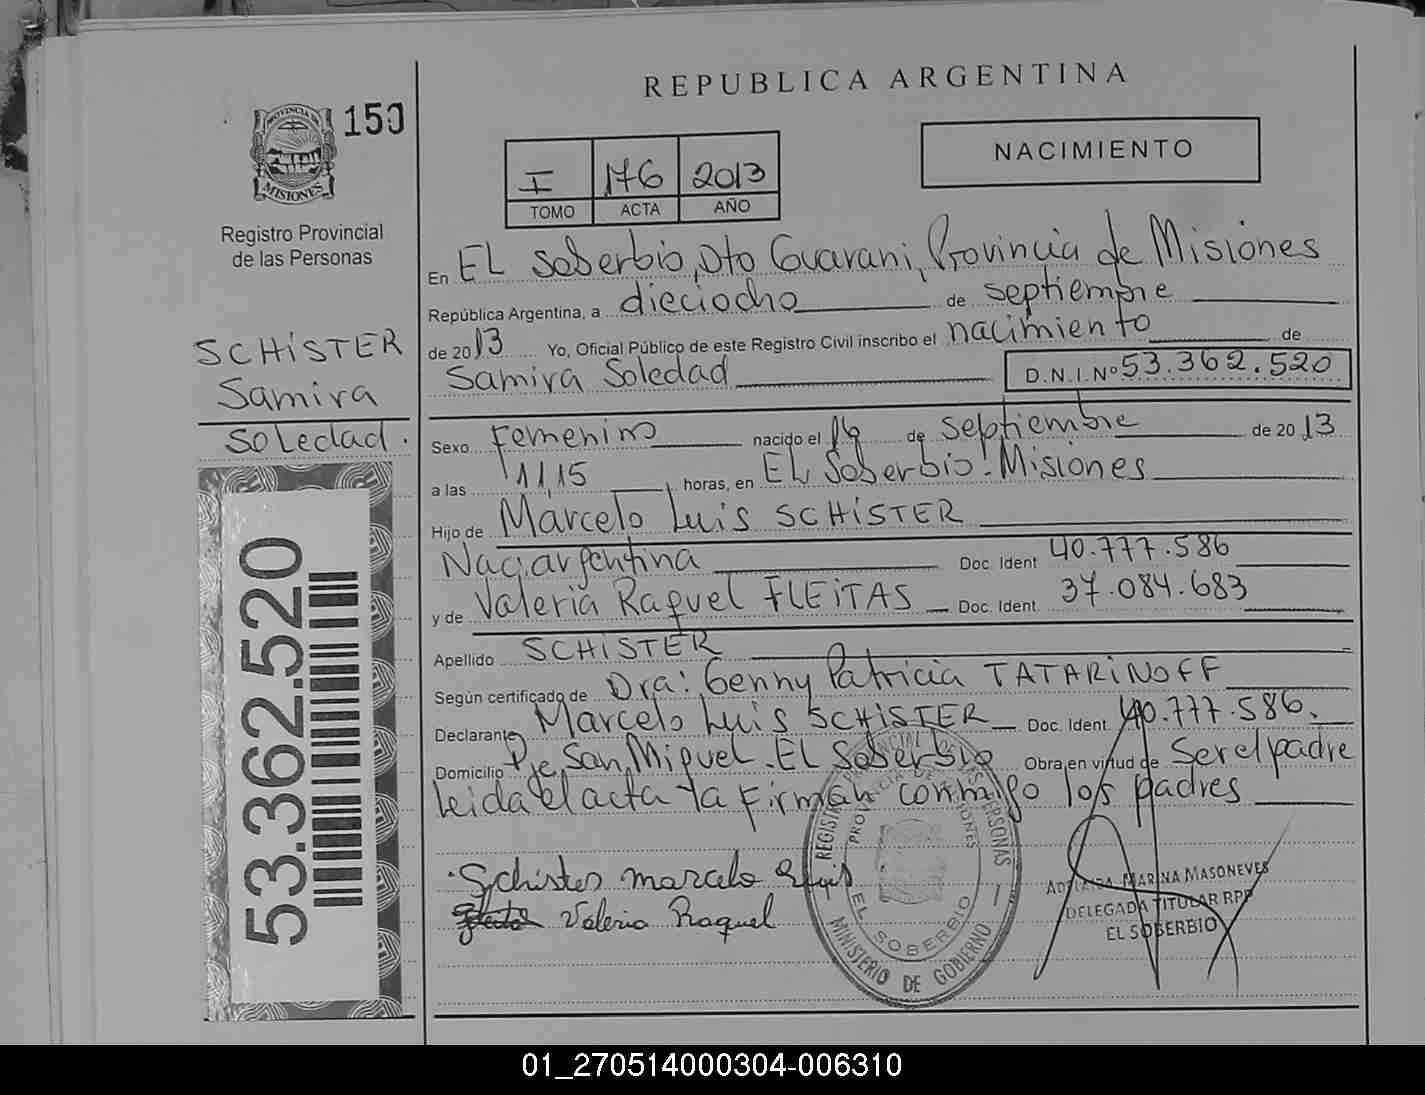 REPUBLICA ARGENTINA
PROVINCIA DE
MISIONES
150
Registro Provincial
de las Personas
I 176 2013
TOMO ACTA AÑO
NACIMIENTO
En EL Soberbio, Dto Guarani, Provincia de Misiones
República Argentina, a dieciocho de septiembre
de 2013 Yo, Oficial Público de este Registro Civil inscribo el nacimiento de
Samira Soledad D.N.I.Nº 53.362.520
SCHiSTER
Samira
Soledad.
Sexo Femenino nacido el 16 de septiembre de 2013
a las 11,15 horas, en EL Soberbio-Misiones
Hijo de Marcelo Luis SCHiSTER
Nac. argentina Doc. Ident 40.777.586
y de Valeria Raquel FLEiTAS Doc. Ident. 37.084.683
Apellido SCHiSTER
Según certificado de Dra: Genny Patricia TATARiNOFF
Declarante Marcelo Luis SCHiSTER Doc. Ident. 40.777.586.
Domicilio Pje San Miguel. EL Soberbio Obra en virtud de Ser el padre
Leida el acta la Firman conmigo los padres
53.362.520
Schister marcelo Luis
Valeria Raquel
REGISTRO PROVINCIAL DE LAS PERSONAS
PROVINCIA DE MISIONES
EL SOBERBIO
MINISTERIO DE GOBIERNO
MARINA MASONEVES
DELEGADA TITULAR RPP
EL SOBERBIO
01_270514000304-006310